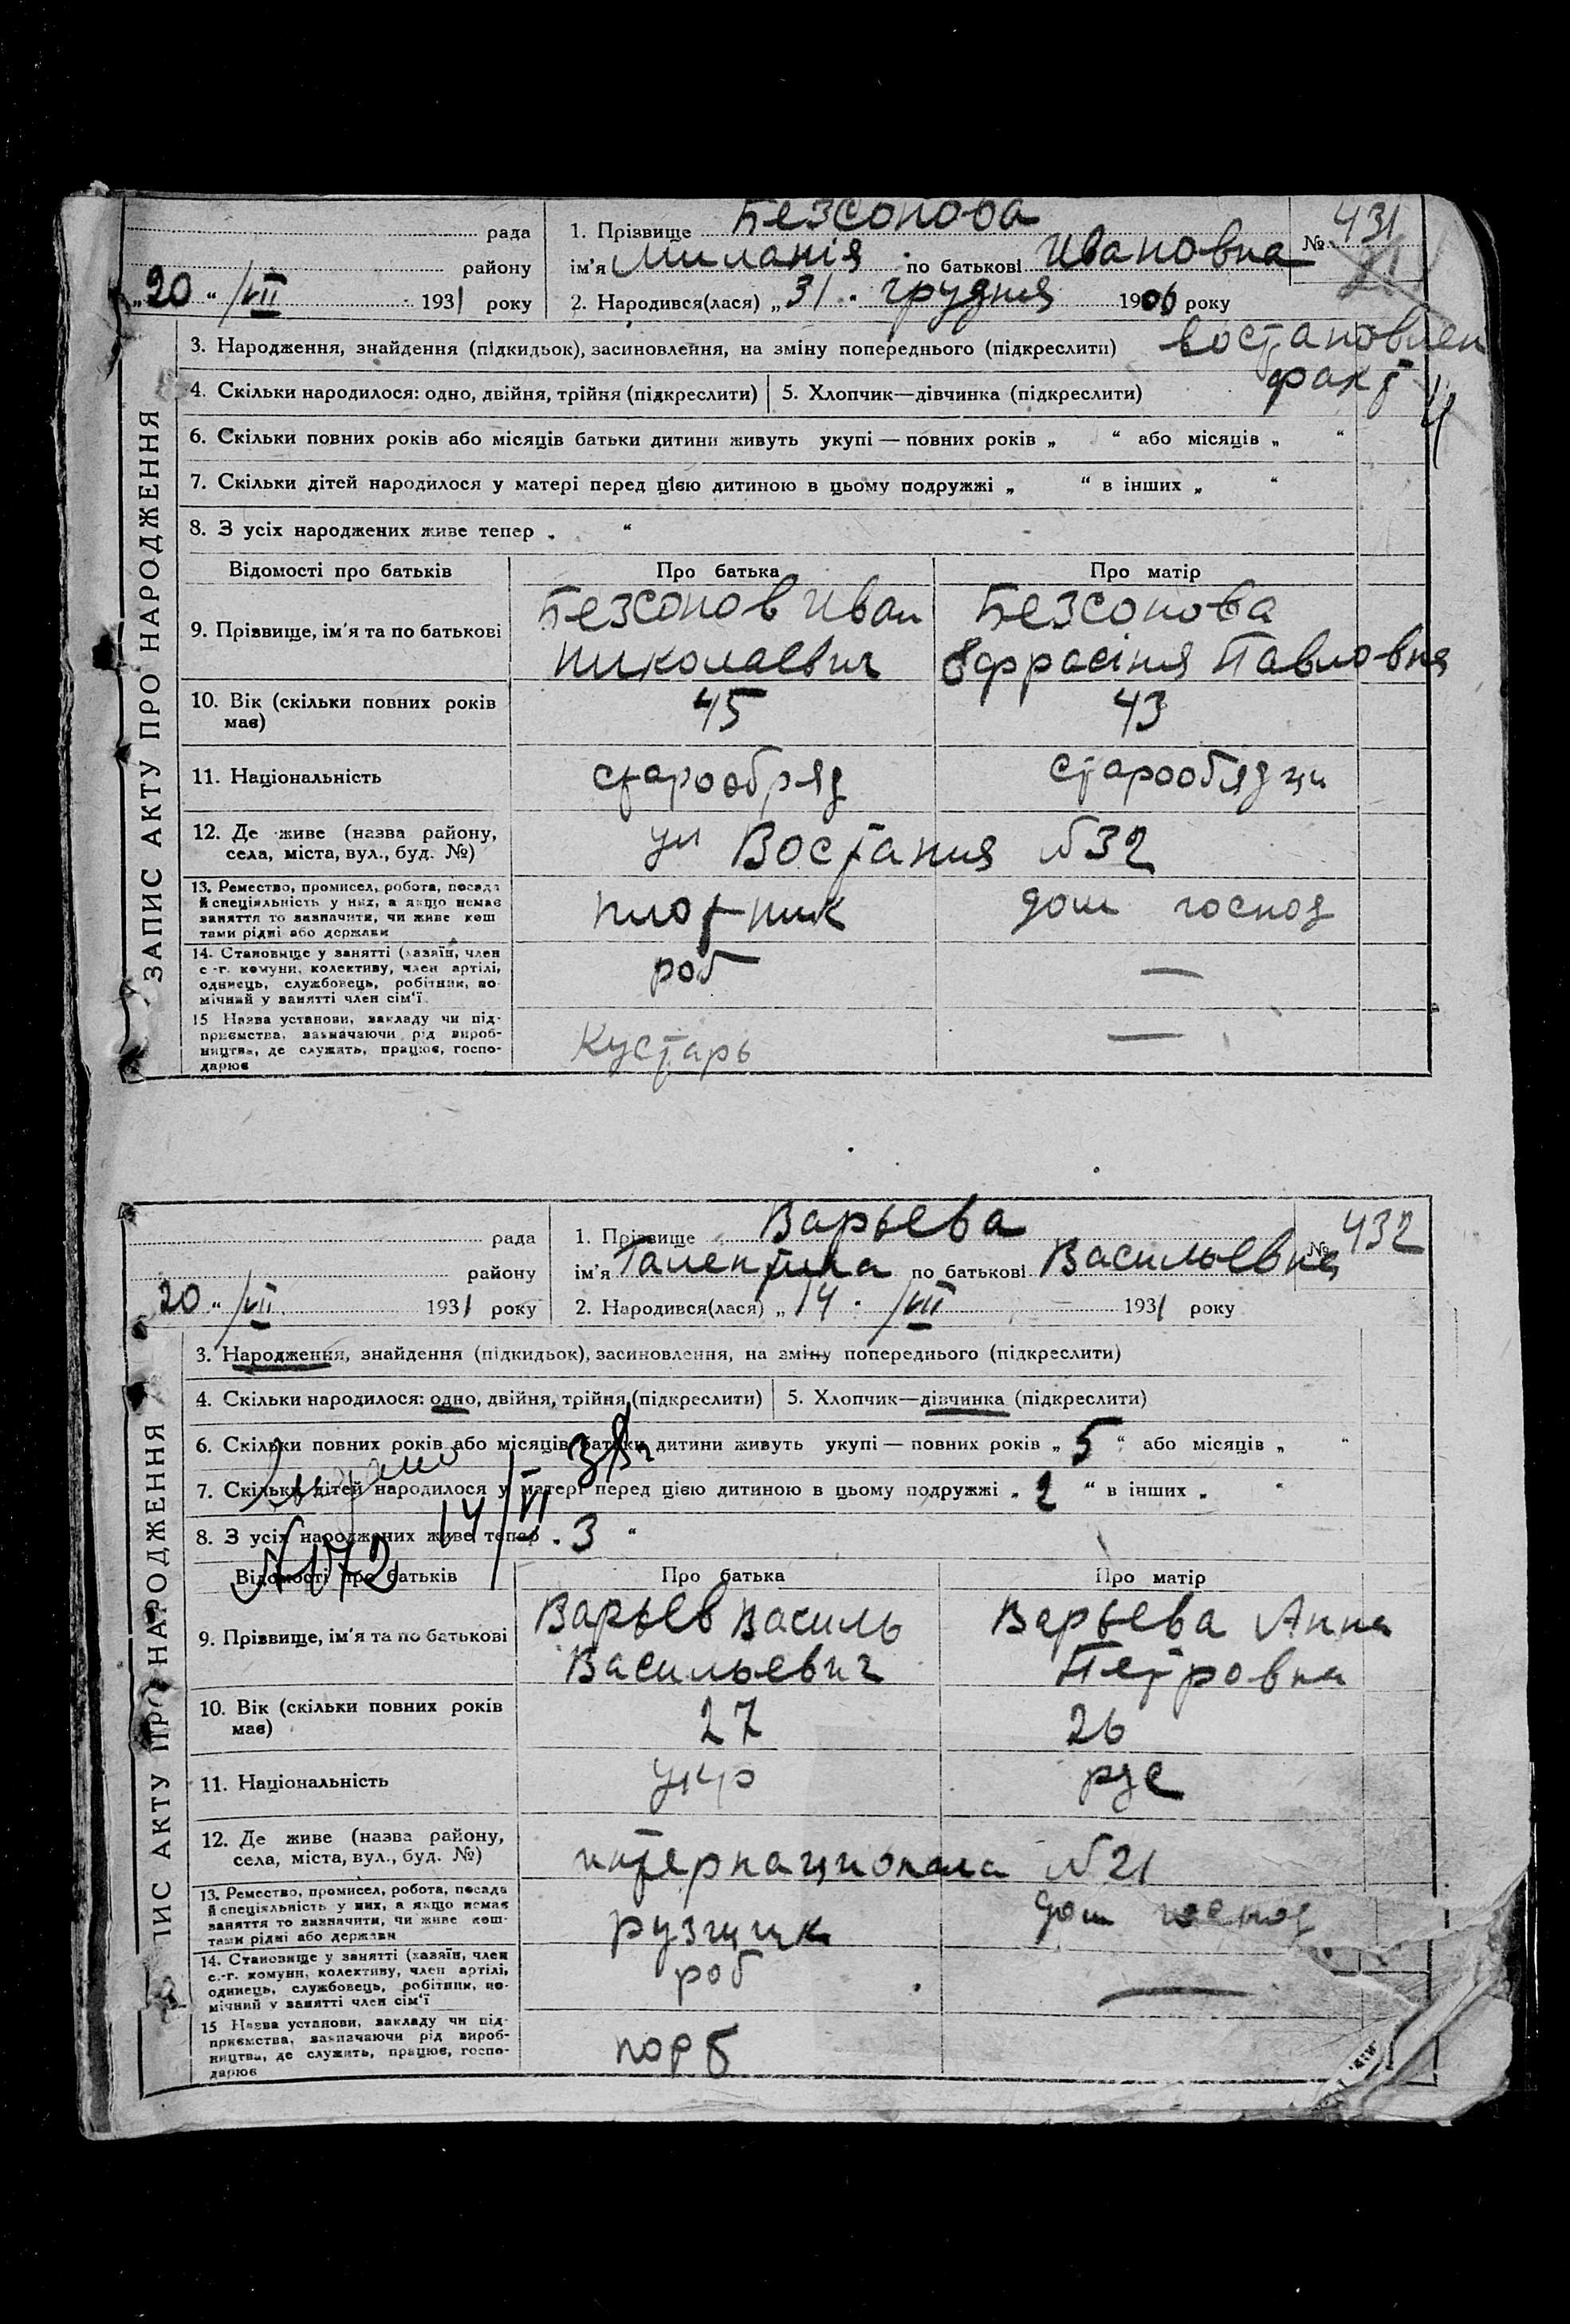 рада
1. Прізвище Безсонова
№ 431
району
ім'я Миланія по батькові Ивановна
„20“ /VII 1931 року
2. Народився(лася) „31. грудня 1906 року
ЗАПИС АКТУ ПРО НАРОДЖЕННЯ
3. Народження, знайдення (підкидьок), засиновлення, на зміну попереднього (підкреслити)
востановлен
факт
4. Скільки народилося: одно, двійня, трійня (підкреслити) 5. Хлопчик—дівчинка (підкреслити)
6. Скільки повних років або місяців батьки дитини живуть укупі — повних років „ “ або місяців „ “
7. Скільки дітей народилося у матері перед цією дитиною в цьому подружжі „ “ в інших „ “
8. З усіх народжених живе тепер „ “
Відомості про батьків Про батька Про матір
9. Прізвище, ім'я та по батькові
Безсонов Иван
Николаевич
Безсонова
Ефрасіния Павловня
10. Вік (скільки повних років
має)
45
43
11. Національність
старообряд
старообядци
12. Де живе (назва району,
села, міста, вул., буд. №)
ул Востания №32
13. Ремество, промисел, робота, посада
й спеціяльність у них, а якщо немає
заняття то зазначити, чи живе кош
тами рідні або держави
плотник
дом господ
14. Становище у занятті (хазяїн, член
с.-г. комуни, колективу, член артілі,
одинець, службовець, робітник, по
мічний у занятті член сім'ї
роб
—
15 Назва установи, закладу чи під-
приємства, зазначаючи рід вироб-
ництва, де служить, працює, госпо-
дарює
Кустарь
—
рада
1. Прізвище Варьева
№ 432
району
ім'я Галентина по батькові Васильевня
20 “ /VII 1931 року
2. Народився(лася) „14. /VII 1931 року
ПИС АКТУ ПРО НАРОДЖЕННЯ
3. Народження, знайдення (підкидьок), засиновлення, на зміну попереднього (підкреслити)
4. Скільки народилося: одно, двійня, трійня (підкреслити) 5. Хлопчик—дівчинка (підкреслити)
6. Скільки повних років або місяців батьки дитини живуть укупі — повних років „ 5 “ або місяців „ “
38г
7. Скільки дітей народилося у матері перед цією дитиною в цьому подружжі „ 2 “ в інших „ “
14/VI
8. З усіх народжених живе тепер „ 3 “
Відомості про батьків Про батька Про матір
9. Прізвище, ім'я та по батькові
Варьев Василь
Васильевич
Варьева Анна
Петровна
10. Вік (скільки повних років
має)
27
26
11. Національність
укр
рус
12. Де живе (назва району,
села, міста, вул., буд. №)
интернационала №21
13. Ремество, промисел, робота, посада
й спеціяльність у них, а якщо немає
заняття то зазначити, чи живе кош-
тами рідні або держави
рузщик
дом господ
14. Становище у занятті (хазяїн, член
с.-г. комуни, колективу, член артілі,
одинець, службовець, робітник, по-
мічний у занятті член сім'ї
роб
—
15 Назва установи, закладу чи під-
приємства, зазначаючи рід вироб-
ництва, де служить, працює, госпо-
дарює